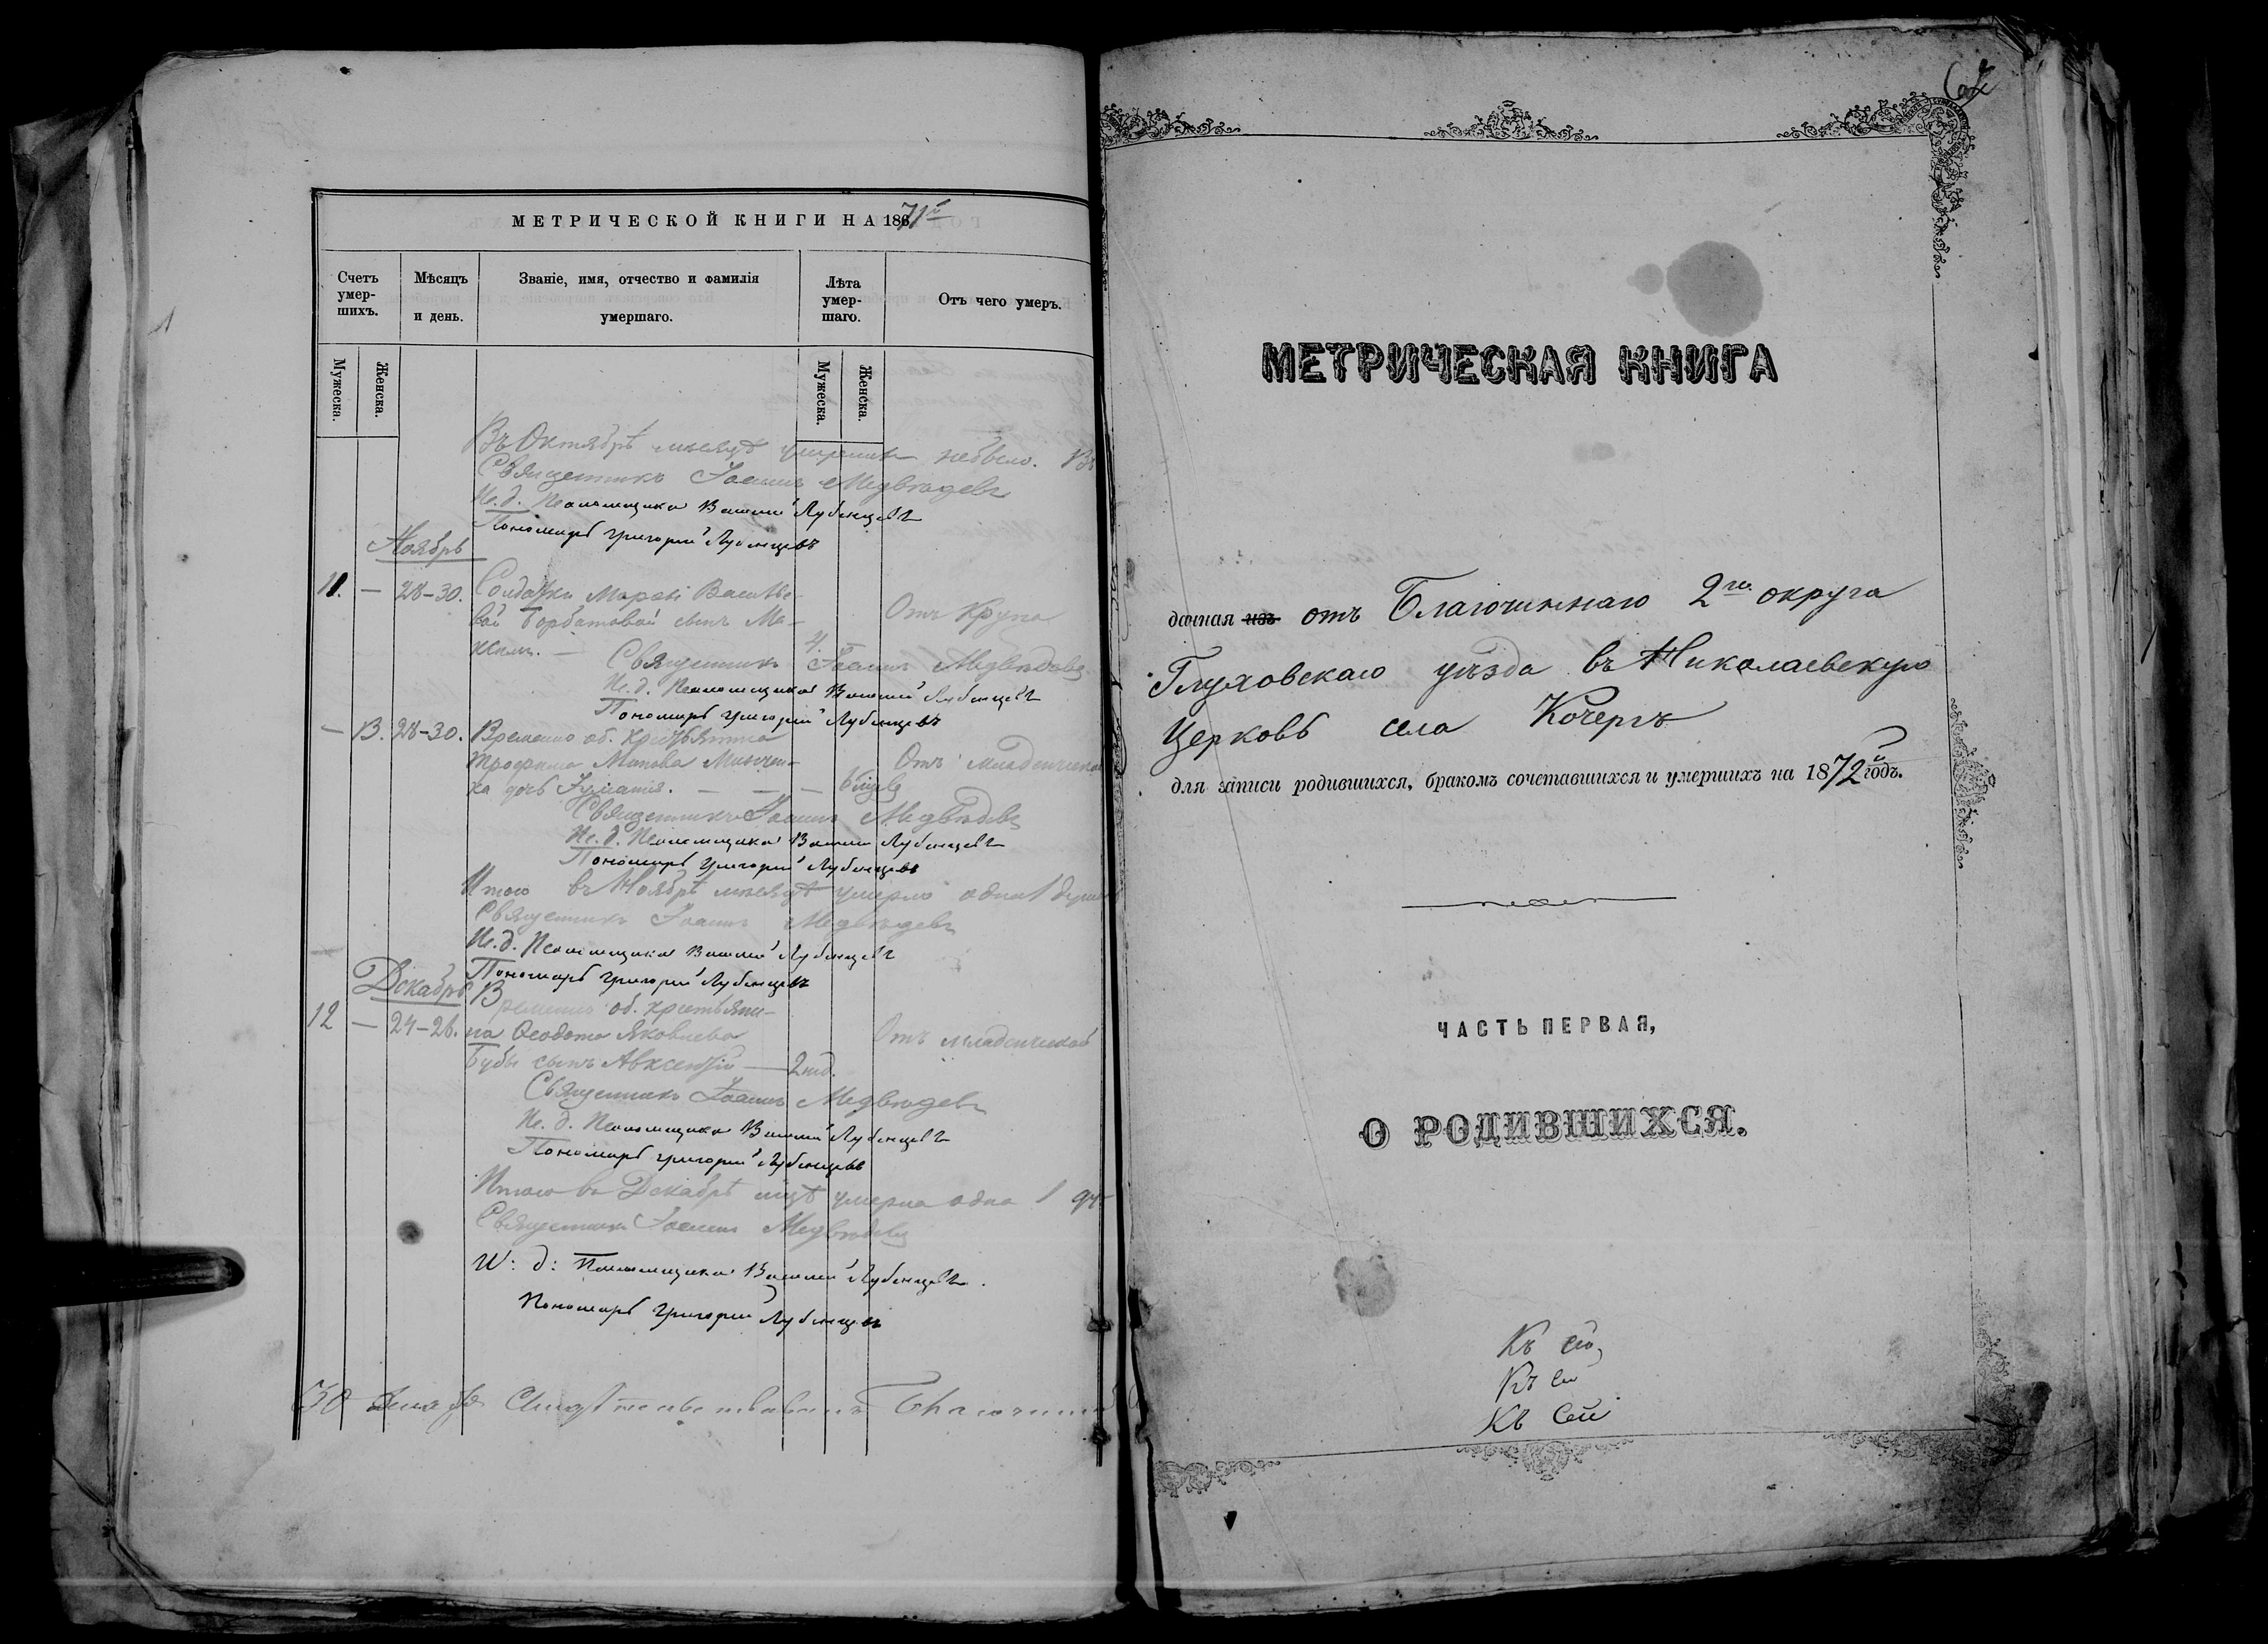 МЕТРИЧЕСКОЙ КНИГИ НА 1871й
Счетъ умер-шихъ.
Мѣсяцъ и день.
Званіе, имя, отчество и фамилія умершаго.
Лѣта умер-шаго.
Отъ чего умеръ.
Мужеска.
Женска.
Мужеска.
Женска.
Въ Октябрѣ месяцѣ умершихъ небыло.
Священникъ Іоаннъ Медвѣдевъ
Ис. д. Псаломщика Василій Лубенцевъ
Пономарь Григорій Лубенцевъ
Ноябрь
11. — 28-30. Солдатки Марѳы Василье-
вой Горбатовой сынъ Ма- Отъ Крупа
4.
Священникъ Іоаннъ Медвѣдевъ
Ис. д. Псаломщика Василій Лубенцевъ
Пономарь Григорій Лубенцевъ
— 13. 28-30. Временно об. Крестьянина
Трофима Минчен- Отъ младенческой
ка дочь
Священникъ Іоаннъ Медвѣдевъ
Ис. д. Псаломщика Василій Лубенцевъ
Пономарь Григорій Лубенцевъ
Итого въ Ноябрѣ месяцѣ умерло одна 1
Священникъ Іоаннъ Медвѣдевъ
Ис. д. Псаломщика Василій Лубенцевъ
Пономарь Григорій Лубенцевъ
Декабрь
Временно об. крестьяни-
12 — 24-26. на Ѳеодота Яковлева Отъ младенческой
Бубы сынъ Авксентій — 2 нед.
Священникъ Іоаннъ Медвѣдевъ
Ис. д. Псаломщика Василій Лубенцевъ
Пономарь Григорій Лубенцевъ
Итого въ Декабрѣ мцѣ умерла одна 1
Священникъ Іоаннъ Медвѣдевъ
И: д: Псаломщика Василій Лубенцевъ.
Пономарь Григорій Лубенцевъ
МЕТРИЧЕСКАЯ КНИГА
данная изъ отъ Благочиннаго 2го округа
Глуховскаго уѣзда въ Николаевскую
Церковь села Кочергъ
для записи родившихся, бракомъ сочетавшихся и умершихъ на 1872й годъ.
ЧАСТЬ ПЕРВАЯ,
О РОДИВШИХСЯ.
Къ
Къ
Къ сей